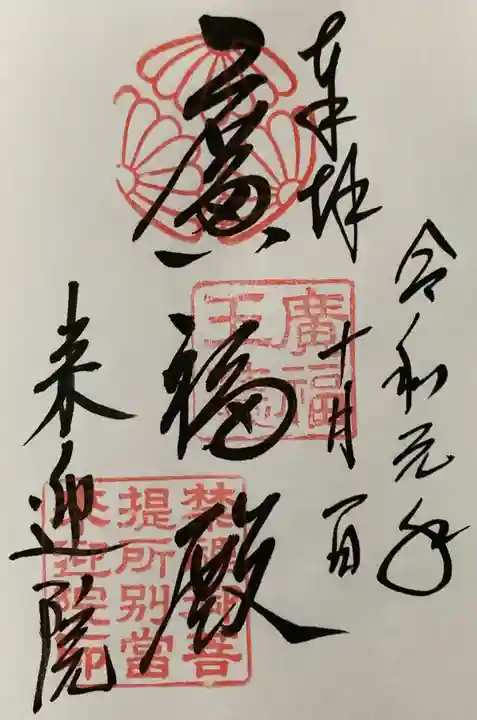 奉拝
令和元年
十月一日
廣福殿
来迎院
廣福
王
禁裡御菩
提所別當
来迎院印